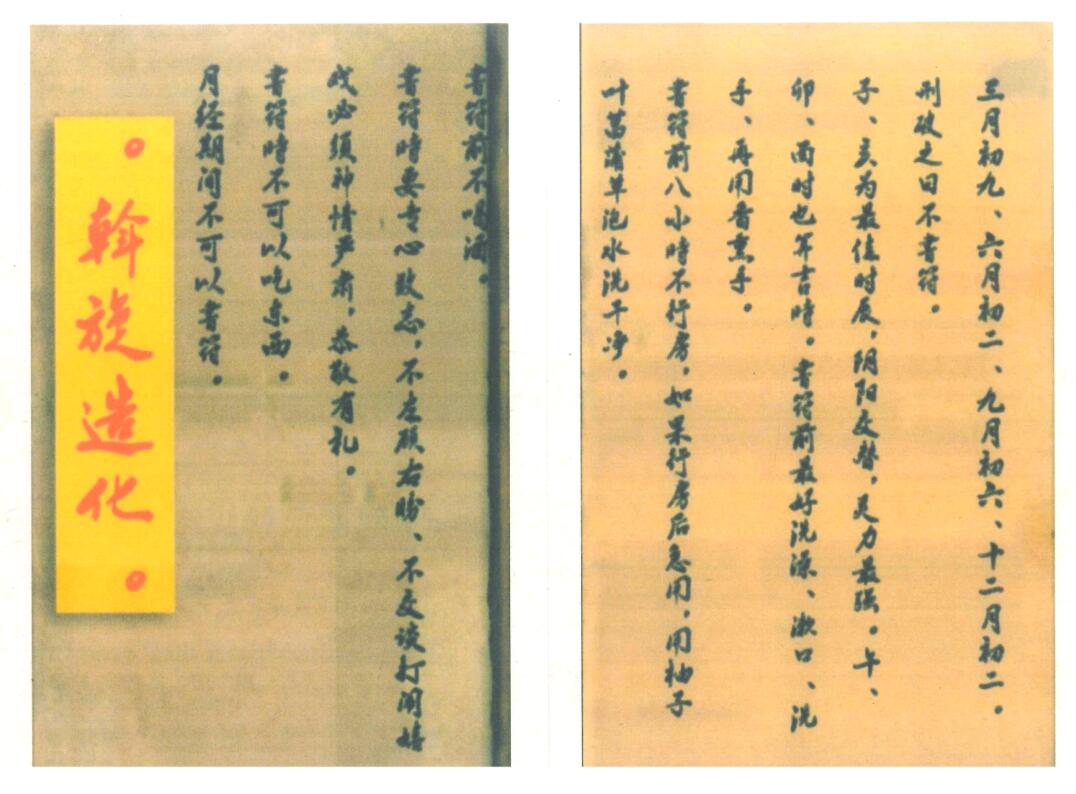 三月初九、六月初二、九月初六、十二月初二。
刑破之日不書符。
子、亥为最佳时辰,阴阳交替,灵力最强。午、
卯、酉时也算吉時。書符前最好洗澡、漱口、洗
手、再用香熏手。
書符前八小時不行房,如果行房后急用,用柚子
叶菖蒲草泡水洗干净。
書符前不喝酒。
書符時要专心致志,不左顾右盼、不交谈打闹嬉
戏必须神情严肃,恭敬有礼。
書符時不可以吃东西。
月经期间不可以書符。
。斡旋造化。